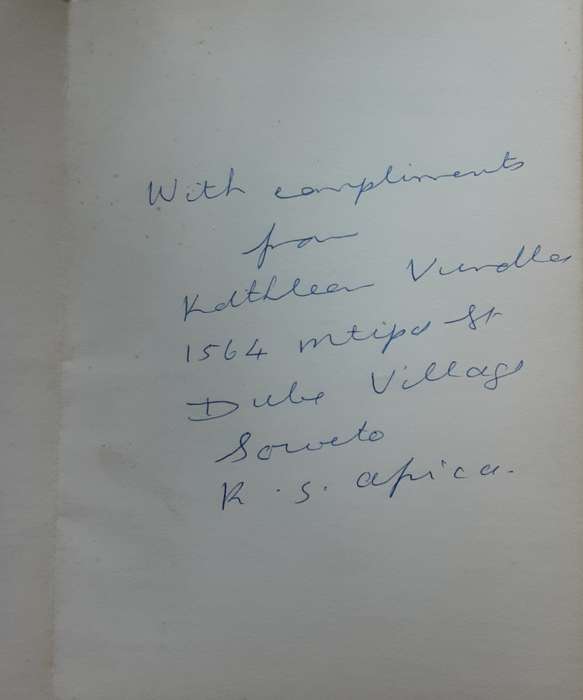 With compliments
from
Kathleen Vundla
1564 Mtipa St
Dube Village
Soweto
R. S. Africa.